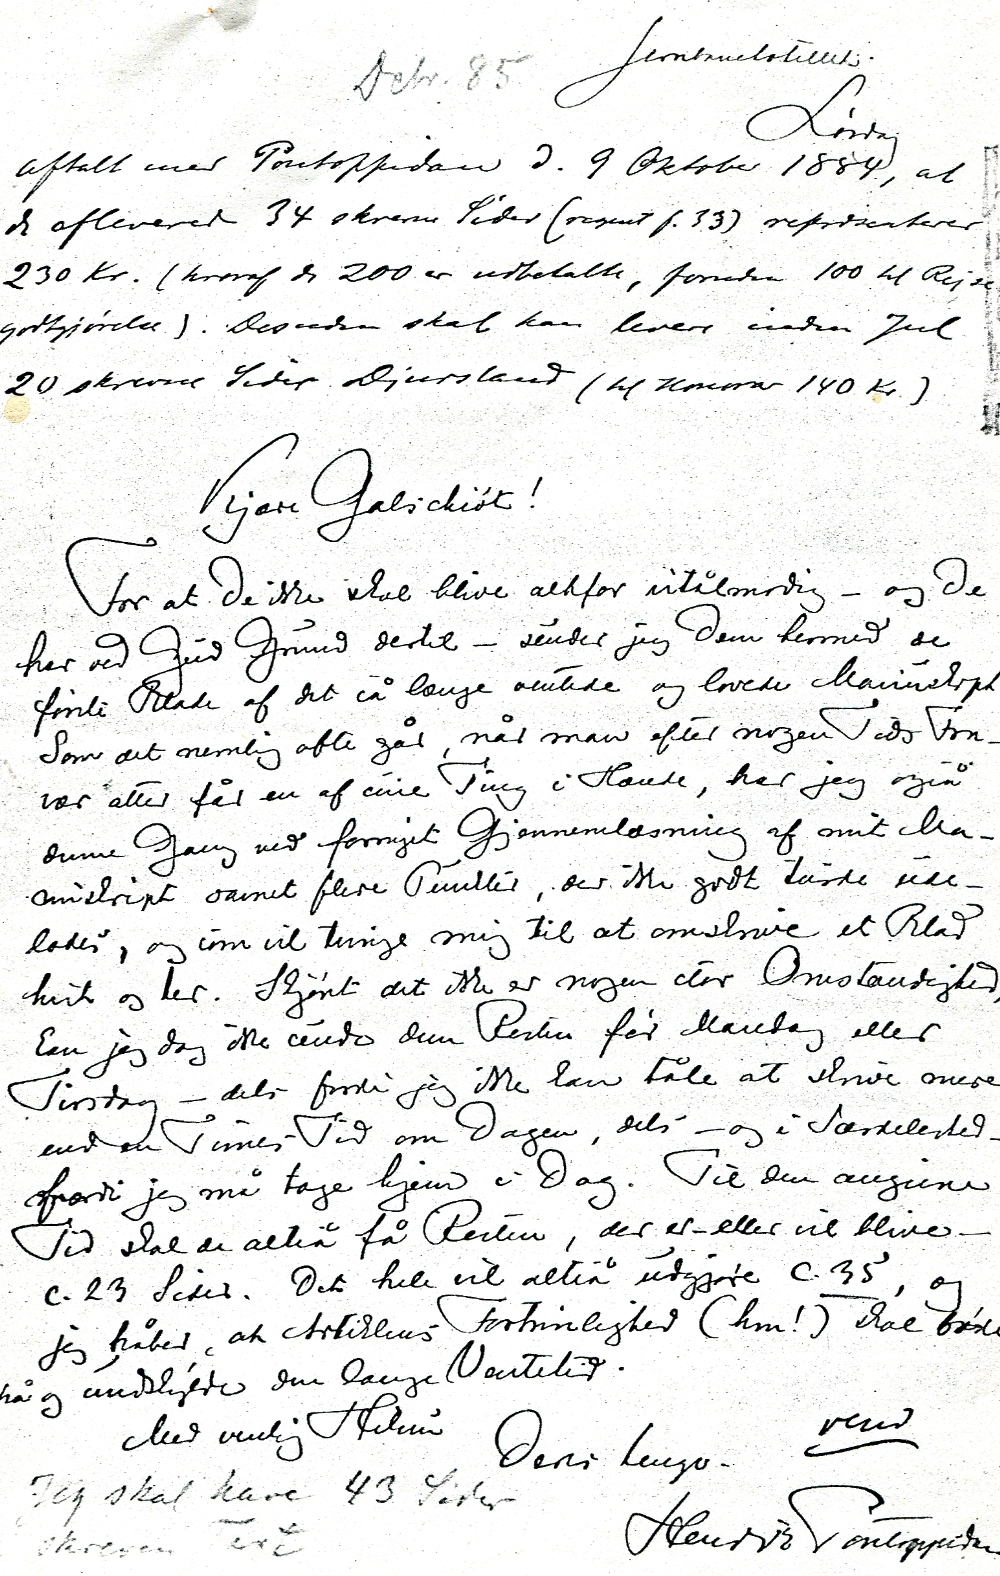 Dcbr. 85
Jernbanehotellet.
Lørdag
aftalt med Pontoppidan d. 9 Oktober 1884, at
de afleverede 34 skrevne Sider (regnet f. 33) repræsenterer
230 Kr. (hvoraf de 200 er udbetalte, foruden 100 til Rejse
godtgjørelse). Desuden skal han levere inden Jul
20 skrevne Sider Djursland (til Honorar 140 Kr.)
Kjære Galschiøt!
For at De ikke skal blive altfor utålmodig – og De
har ved Gud Grund dertil – sender jeg Dem hermed de
første Blade af det så længe ventede og lovede Manuskript
Som det nemlig ofte går, når man efter nogen Tids Fra-
vær atter får en af sine Ting i Hænde, har jeg også
denne Gang ved fornyet Gjennemlæsning af mit Ma-
nuskript savnet flere Punkter, der ikke godt turde ude-
lades, og som vil tvinge mig til at omskrive et Blad
hist og her. Skjønt det ikke er nogen stor Omstændighed,
kan jeg dog ikke sende dem Resten før Mandag eller
Tirsdag – dels fordi jeg ikke kan tåle at skrive mere
end en Times Tid om Dagen, dels – og i Særdeleshed –
fordi jeg må tage hjem i Dag. Til den angivne
Tid skal de altså få Resten, der er – eller vil blive –
c. 23 Sider. Det hele vil altså udgjøre c. 35, og
jeg håber, at Artiklens Fortrinlighed (hm!) skal bøde
på og undskylde den lange Ventetid.
Med venlig Hilsen
Deres hengv.
vend
Henrik Pontoppidan
Jeg skal have 43 Sider
skreven Text